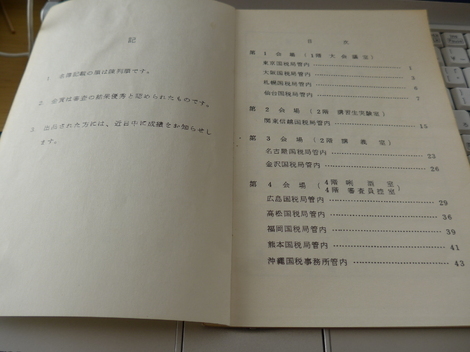 記
1 品書記載の順は陳列順です。
2 金賞は審査の結果優秀と認められたものです。
3 出品された方には、近日中に成績をお知らせし
ます。
目 次
第 1 会 場 (1階 大会議室)
東京国税局管内 1
大阪国税局管内
札幌国税局管内
仙台国税局管内 7
第 2 会 場 (2階 講習生実験室)
関東信越国税局管内 15
第 3 会 場 (2階 講義室)
名古屋国税局管内 22
金沢国税局管内 26
第 4 会 場 (4階 唎酒室
4階 審査員控室)
広島国税局管内 29
高松国税局管内 36
福岡国税局管内 39
熊本国税局管内 41
沖縄国税事務所管内 43